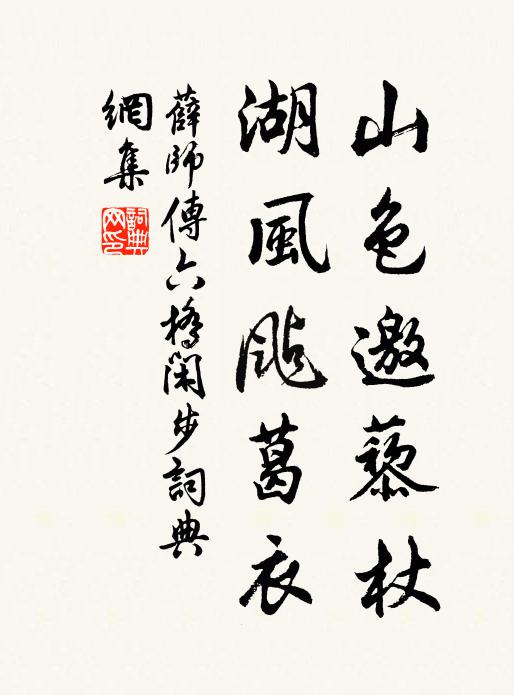 山色邀藜杖
湖風颭葛衣
薛師傳六橋閑步詞典
網集
詞典
网印